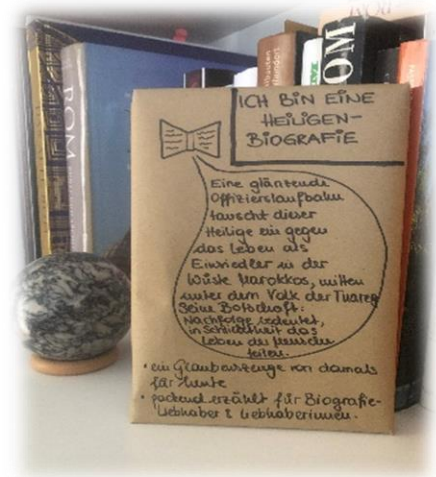 ROM
ICH BIN EINE
HEILIGEN-
BIOGRAFIE
Eine glänzende
Offizierslaufbahn
tauscht dieser
Heilige ein gegen
das Leben als
Einsiedler in der
Wüste Marokkos, mitten
unter dem Volk der Tuareg
Seine Botschaft:
Nachfolge bedeutet,
in Schlichtheit das
Leben der Menschen
teilen.
• ein Glaubenszeuge von damals
für heute
• packend erzählt für Biografie-
Liebhaber & Liebhaberinnen.